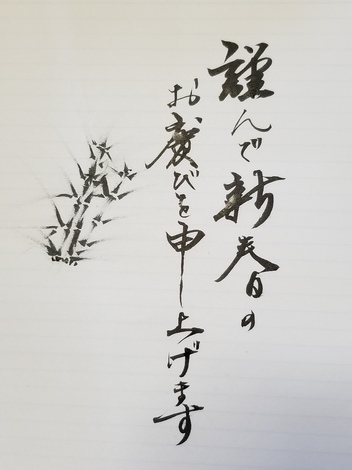 謹んで新春の
お慶びを申し上げます